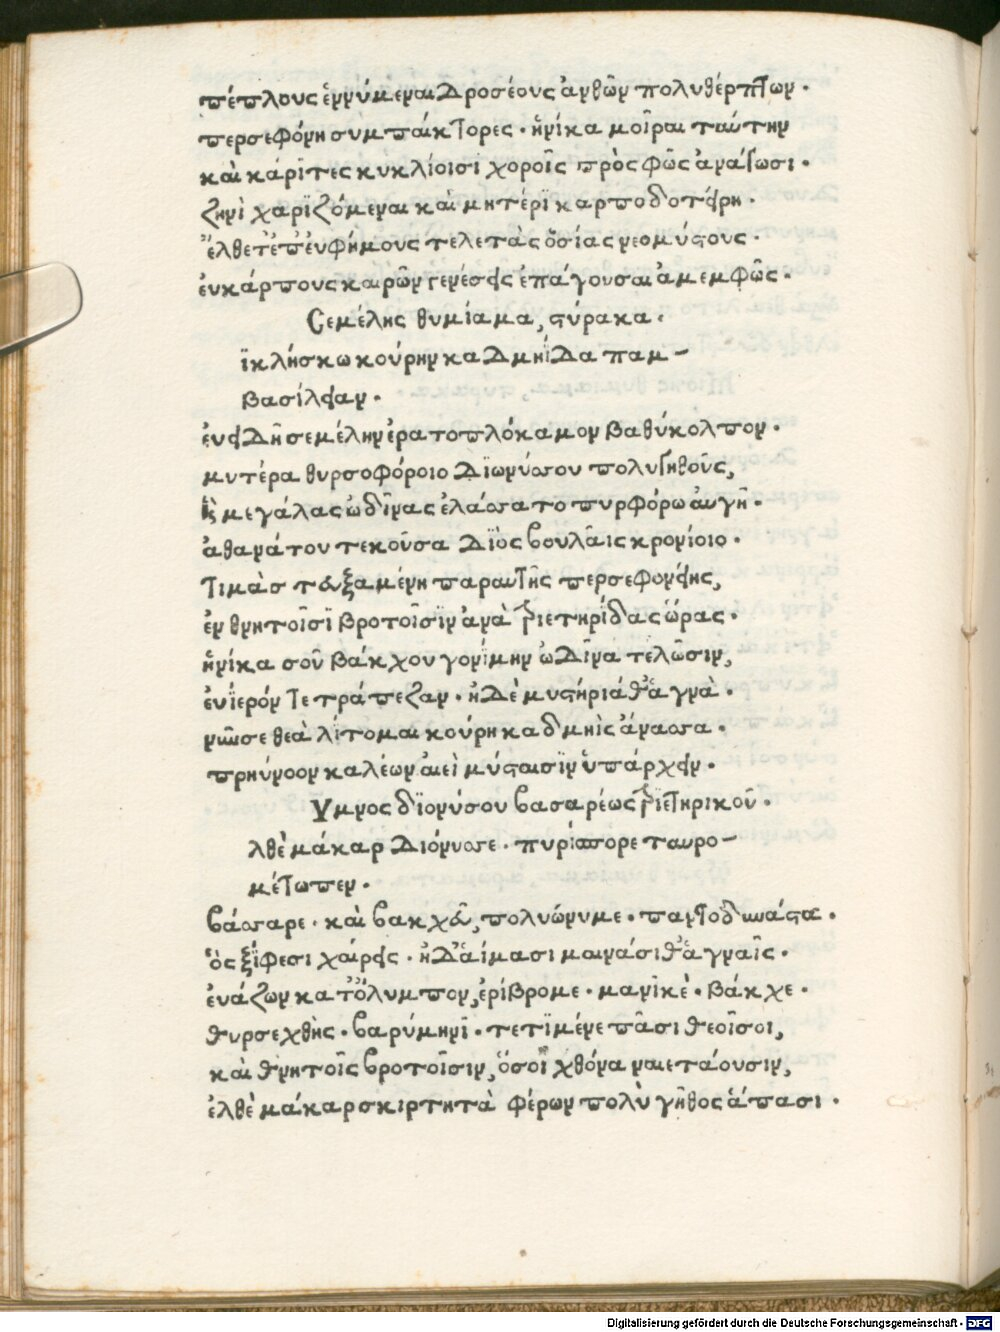 πέπλους ἑννύμεναι Δροσέους ἀνθῶν πολυθέρπτων.
περσεφόνη συμπάικτορες. ἡνίκα μοῖραι ταύτην
καὶ κάριτες κυκλίοισι χοροῖς πρὸς φῶς ἀνάγωσι.
ζηνὶ χαριζόμεναι καὶ μητέρι καρποδοτείρη.
ἔλθετ' ἐπ' ἐυφήμους τελετὰς ὁσίας νεομύστους.
ἐυκάρπους καιρῶν γενέσεις ἐπάγουσαι ἀμεμφῶς.
Σεμέλης θυμίαμα, στύρακα.
ϊκλήσκω κούρην καΔμηΐΔα παμ-
βασίλειαν.
ἐυειΔῆ σεμέλην ἐρατοπλόκαμον βαθύκολπον.
μντέρα θυρσοφόροιο Διωνύσου πολυγηθοῦς,
ἣ μεγάλας ὠδῖνας ἐλάσσατο πυρφόρω ἀυγῆ.
ἀθανάτου τεκοῦσα Διὸς βουλᾶις κρονίοιο.
τιμὰς τευξαμένη παρ' αυτῆς περσεφονείης,
ἐν θνητοῖσι βροτοῖσιν ἀνὰ τριετηρίδας ὥρας.
ἡνίκα σοῦ βάκχου γονίμην ὠΔῖνα τελῶσιν,
ἐυΐερόν τε τράπεζαν. ἠΔὲ μυστήριά θ' ἁγνά.
νῦν σε θεὰ λίτομαι κούρη καδμηὶς ἄνασσα.
πρηύνοον καλέων ἀιεὶ μύσταισιν ὑπάρχειν.
Υμνος διονύσου βασαρέως τριετηρικοῦ.
λθὲ μάκαρ Διόνυσε. πυρίσπορε ταυρο-
μέτωπεν.
βάσσαρε. καὶ βακχεῦ, πολυώνυμε. παντοδυνάστα.
ὃς ξίφεσι χαίρεις. ἠΔ' αἵμασι μαινάσι θ' ἁγναῖς.
ἐυάζων κατ' ὄλυμπον, ἐρίβρομε. μανικὲ. βάκχε.
θυρσεχθὴς. βαρύμηνι. τετιμένε πᾶσι θεοῖσι,
καὶ θνητοῖς βροτοῖσιν, ὅσοι χθόνα ναιετάουσιν,
ἐλθὲ μάκαρ σκιρτητὰ φέρων πολὺ γῆθος ἅπασι.
Digitalisierung gefördert durch die Deutsche Forschungsgemeinschaft - DFG